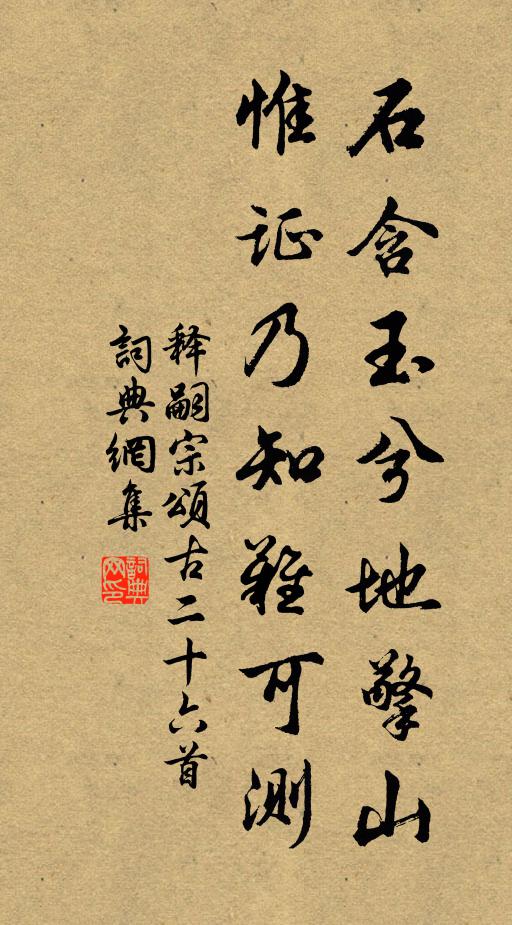 石含玉兮地擎山
惟证乃知難可测
释嗣宗頌古二十六首
詞典網集
詞典网印